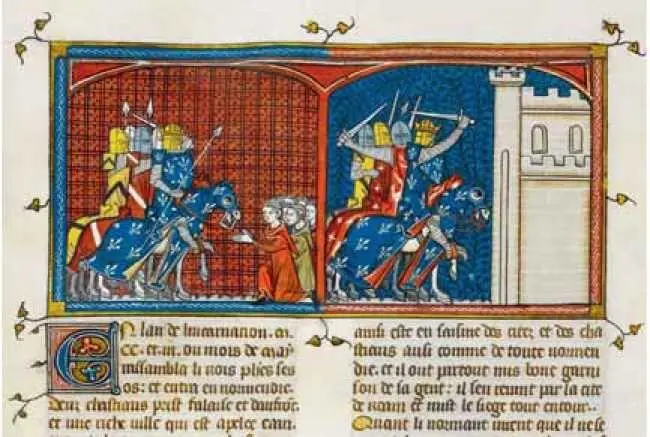 En lan de lincarnacion. m.
CC. et. iii. ou mois de may
assambla li rois phes ses
os: et entra en normendie.
Deus chastiaus prist falaise et danfront.
et une riche ville qui est apelee caan.
ainsi este en saisine des citez et des cha
stiaus ausi comme de toute normen
die. et il out partout mis bone garni
son de sa gent: il sen revint par la cite
de roam et mist le siege tout entour.
Quant li normant virent que il ne se